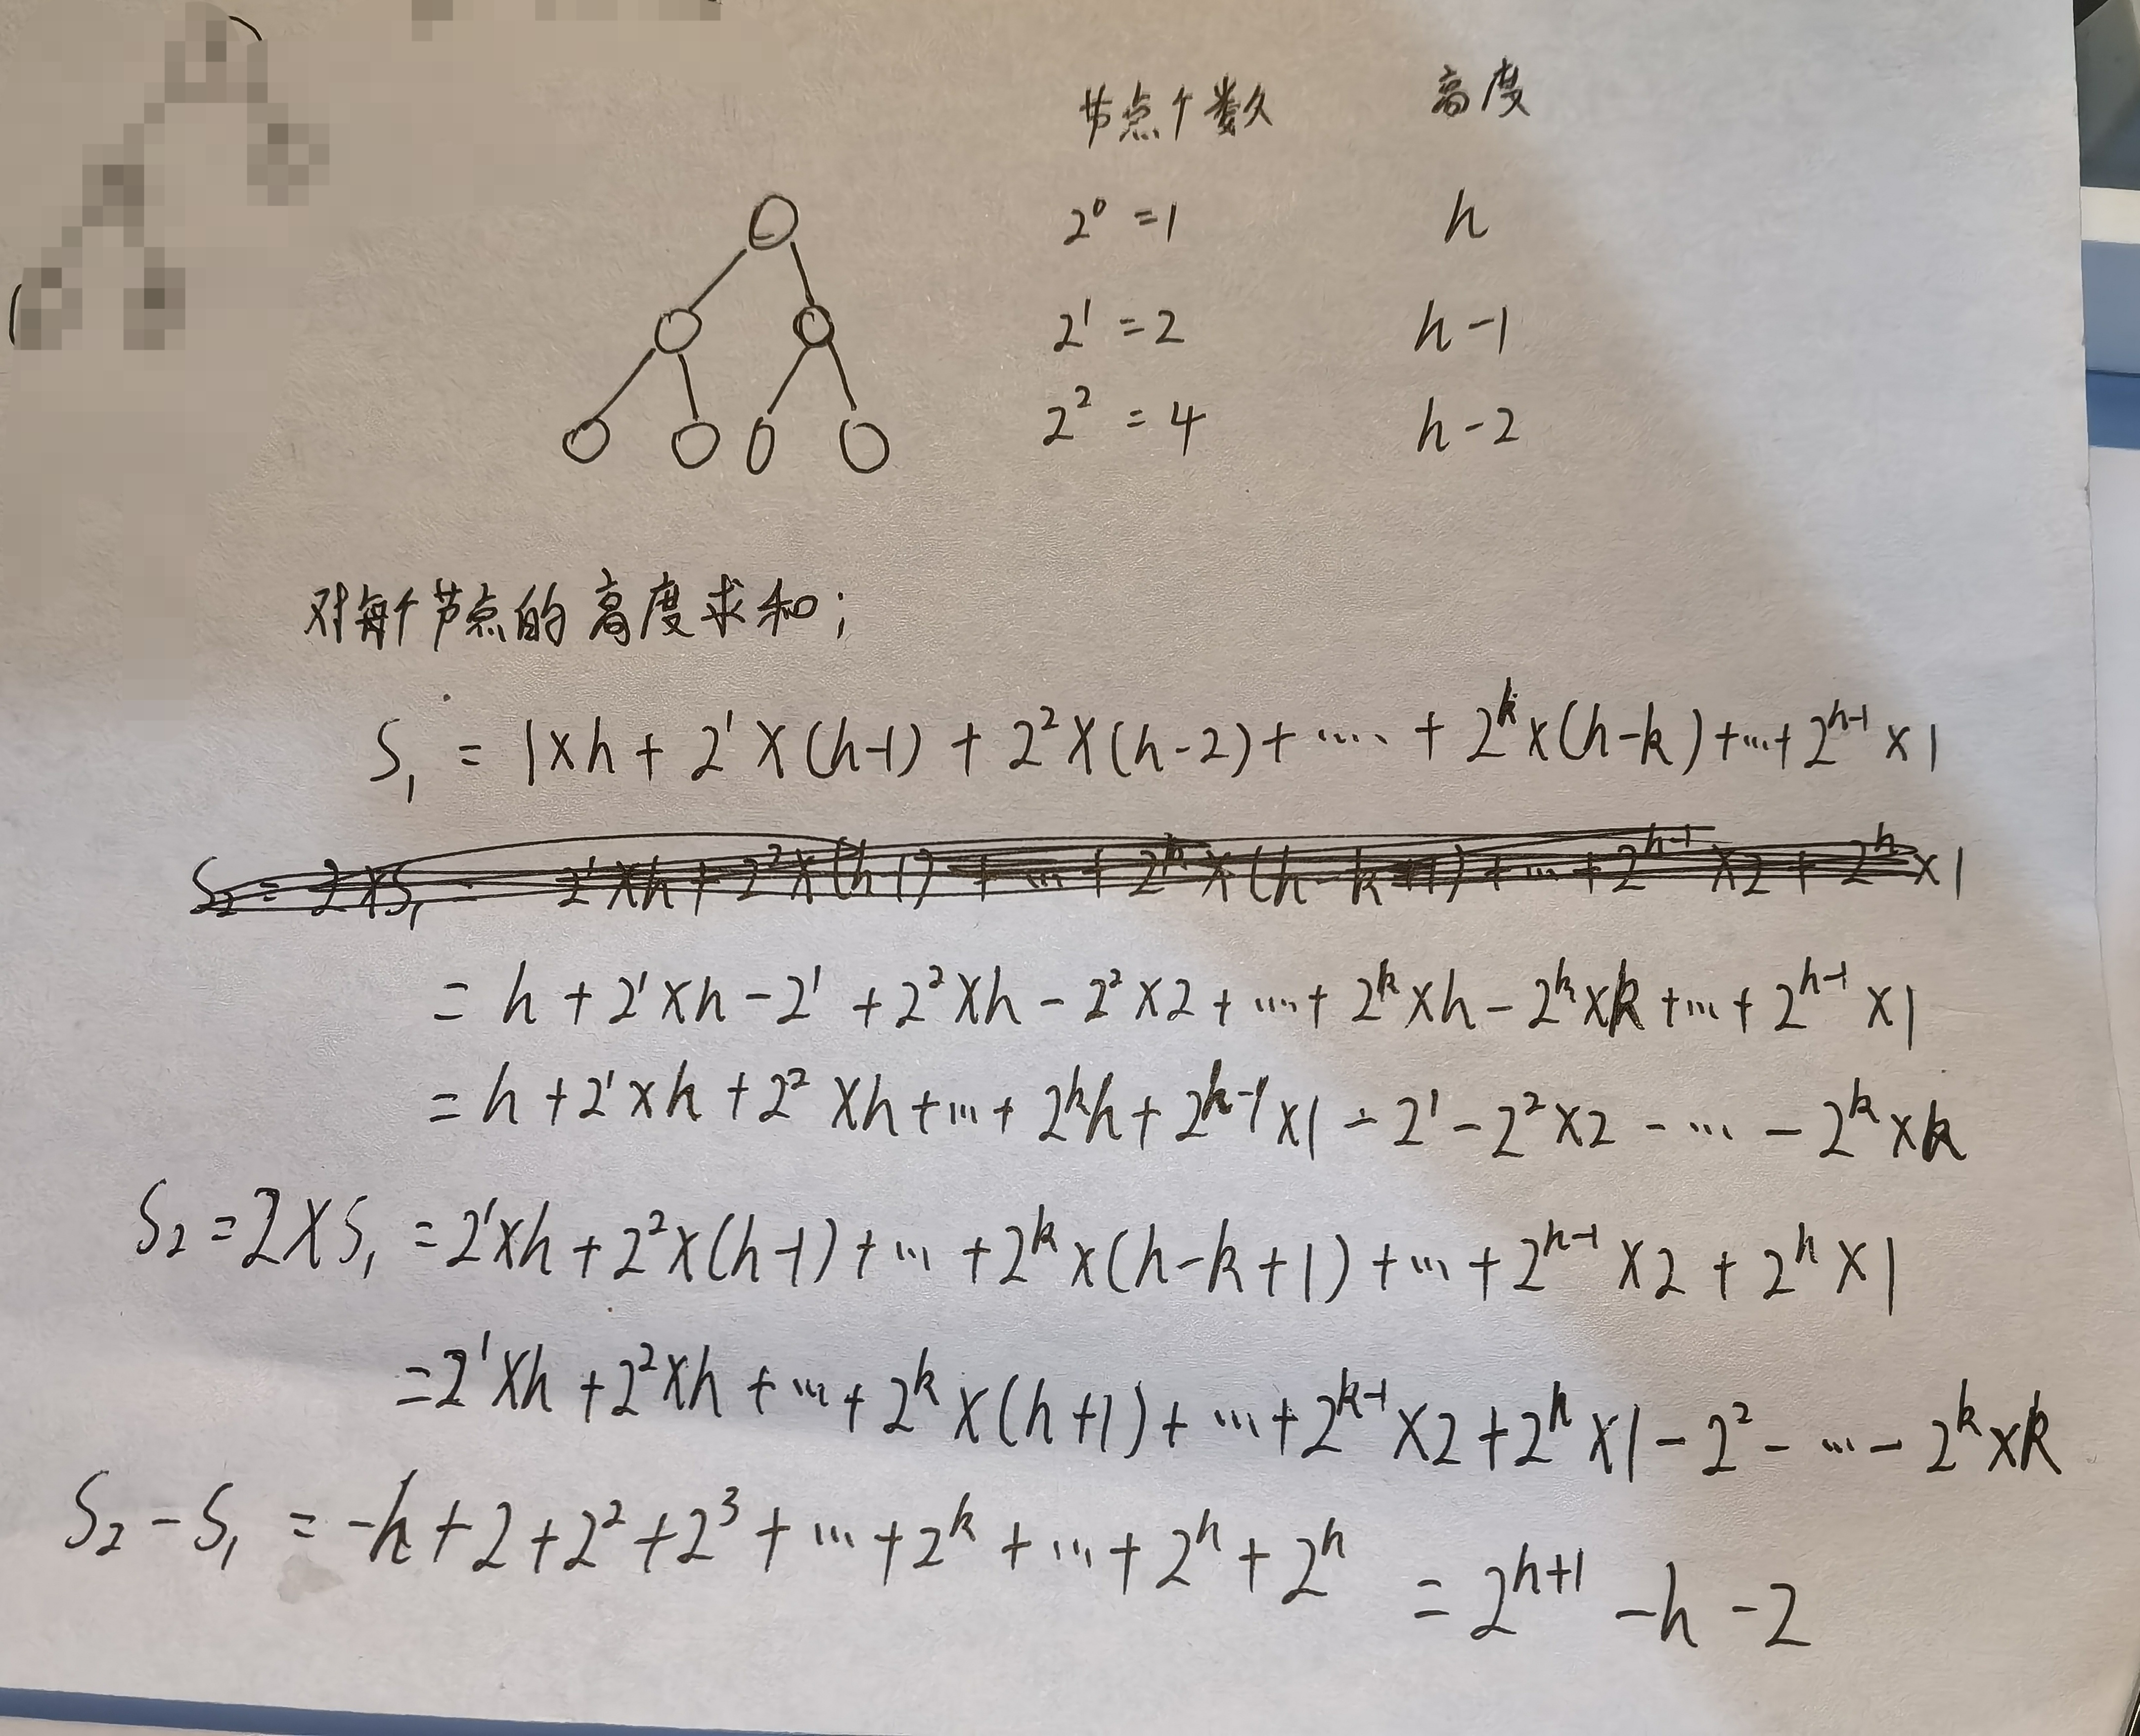 节点个数 高度
2⁰ =1 h
2¹ =2 h-1
2² =4 h-2
对每个节点的高度求和;
S₁ = 1×h + 2¹×(h-1) + 2²×(h-2) + ···· + 2ᵏ×(h-k) + ··· + 2ʰ⁻¹×1
S₂ = 2×S₁ = 2¹×h + 2²×(h-1) + ··· + 2ᵏ×(h-k+1) + ··· + 2ʰ⁻¹×2 + 2ʰ×1
= h + 2¹×h - 2¹ + 2²×h - 2²×2 + ···· + 2ᵏ×h - 2ᵏ×k + ··· + 2ʰ⁻¹×1
= h + 2¹×h + 2²×h + ··· + 2ᵏh + 2ʰ⁻¹×1 - 2¹ - 2²×2 - ··· - 2ᵏ×k
S₂ = 2×S₁ = 2¹×h + 2²×(h-1) + ··· + 2ᵏ×(h-k+1) + ··· + 2ʰ⁻¹×2 + 2ʰ×1
= 2¹×h + 2²×h + ··· + 2ᵏ×(h+1) + ··· + 2ᵏ⁻¹×2 + 2ʰ×1 - 2² - ··· - 2ᵏ×k
S₂ - S₁ = -h + 2 + 2² + 2³ + ··· + 2ᵏ + ··· + 2ʰ + 2ʰ = 2ʰ⁺¹ - h - 2